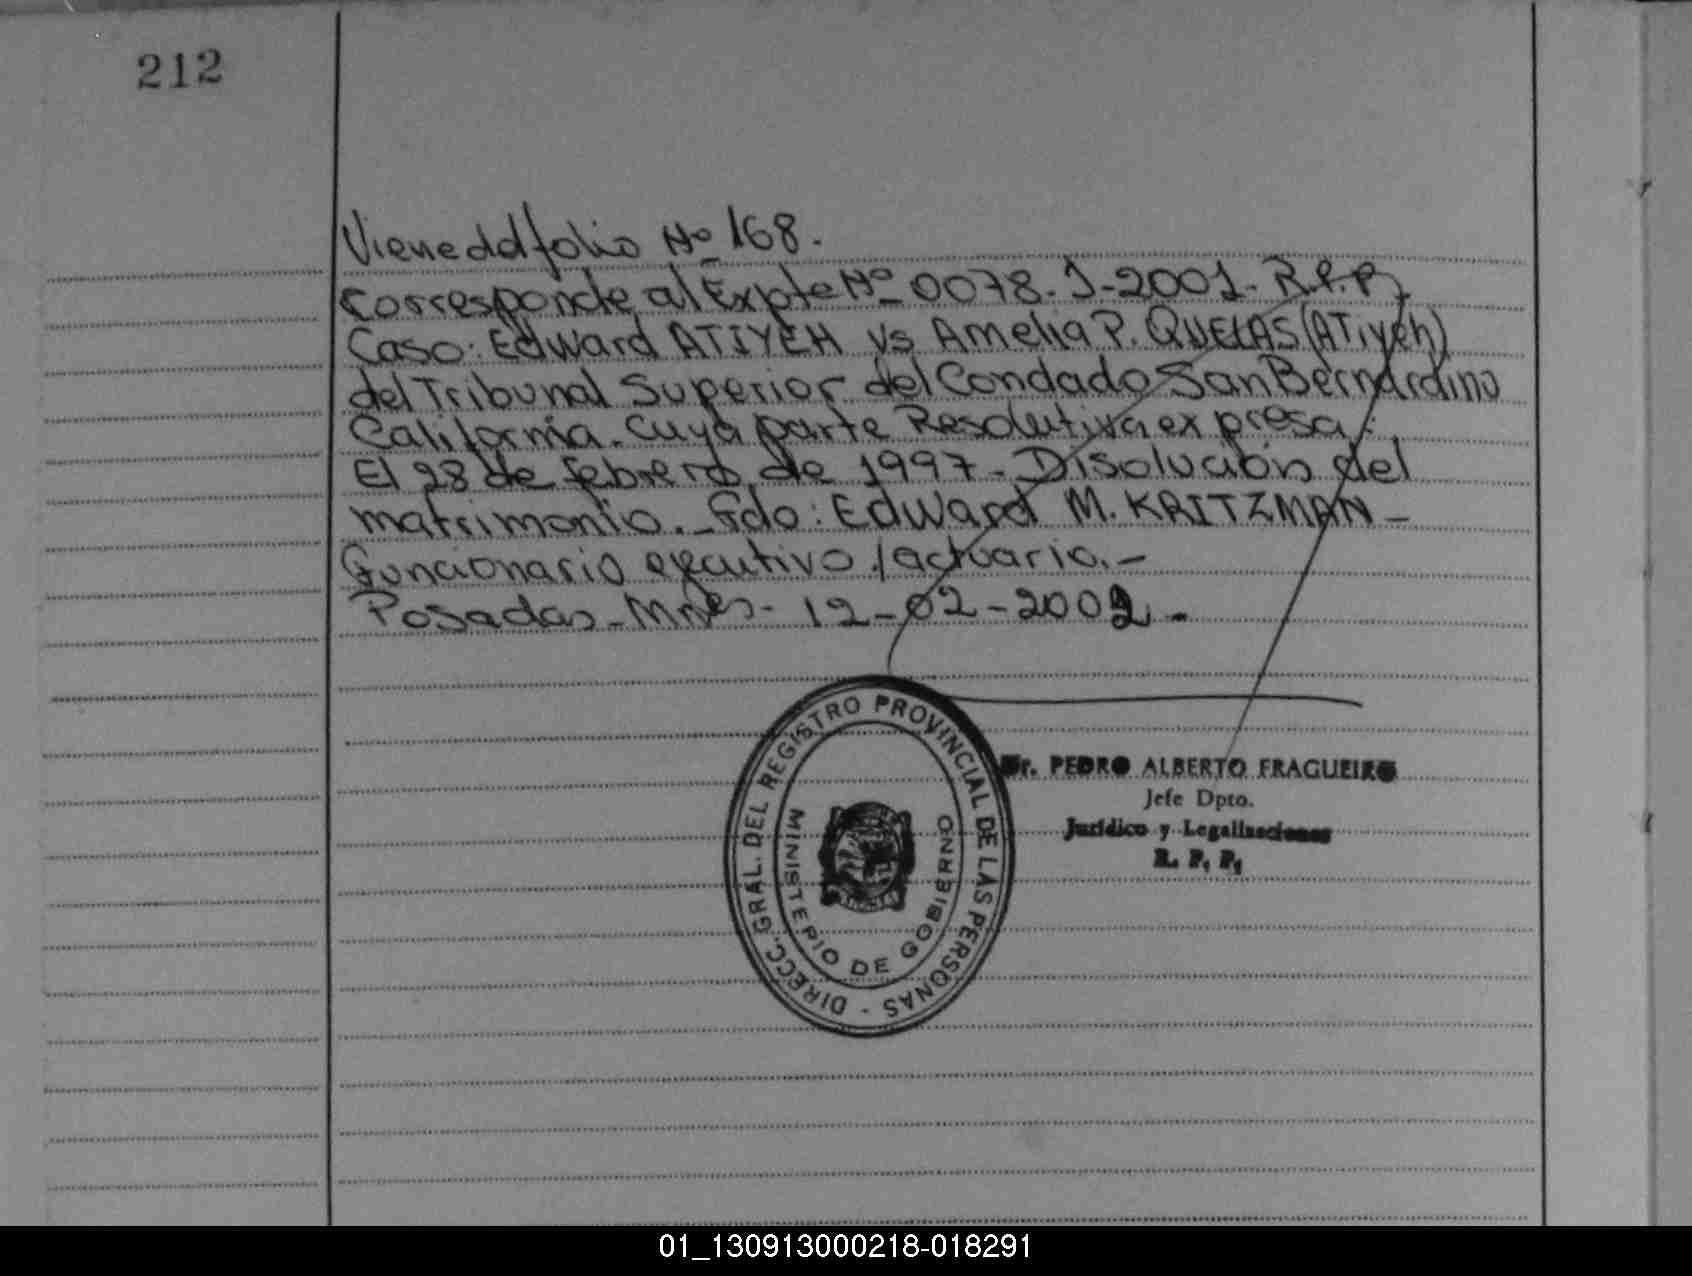 212
Viene del folio Nº 168.
Corresponde al Expte Nº 0078-J-2001-R.P.P.
Caso: Edward ATIYEH vs Amelia P. QUELAS (ATiyeh)
del Tribunal Superior del Condado San Bernardino
California. cuya parte Resolutiva expresa:
El 28 de febrero de 1997- Disolución del
matrimonio._ Fdo: Edward M. KRITZMAN -
Funcionario ejecutivo /actuario.-
Posadas-Mnes- 12-02-2002-
DIRECC. GRAL. DEL REGISTRO PROVINCIAL DE LAS PERSONAS -
MINISTERIO DE GOBIERNO
Dr. PEDRO ALBERTO FRAGUEIRO
Jefe Dpto.
Jurídico y Legalizaciones
R. P. P.
01_130913000218-018291